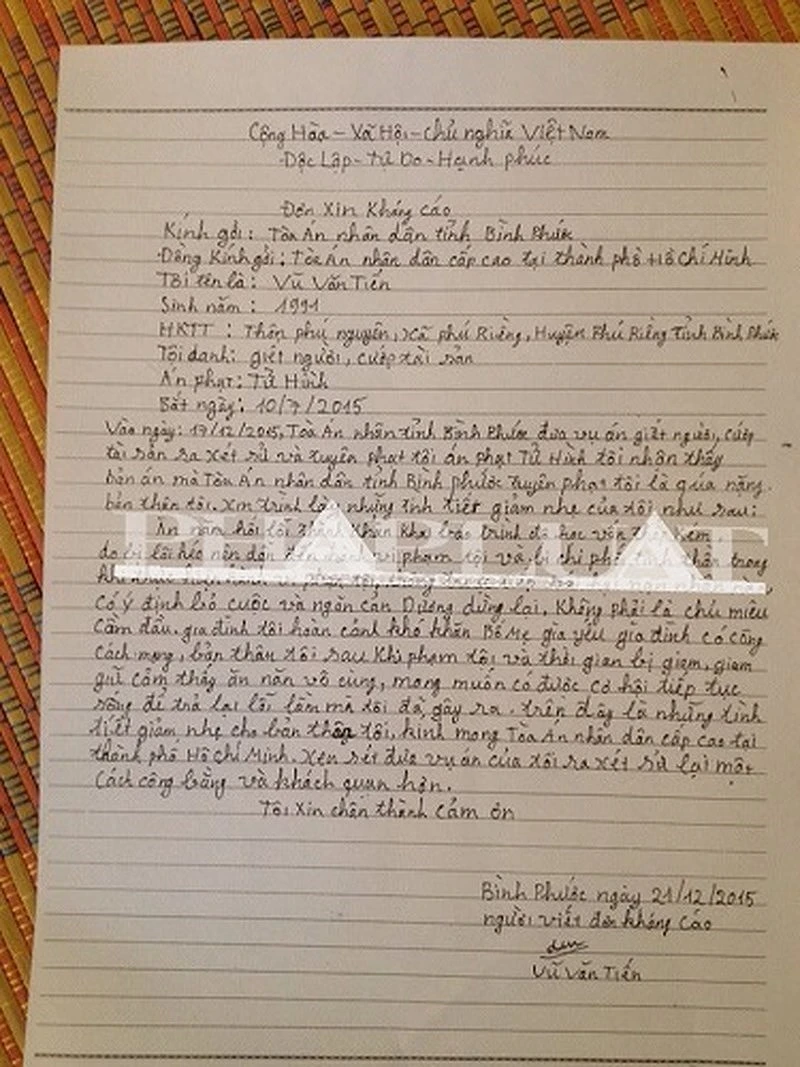 Cộng Hòa - Xã Hội - chủ nghĩa Việt Nam
Độc Lập - Tự Do - Hạnh phúc
Đơn Xin Kháng Cáo
Kính gởi : Tòa Án nhân dân tỉnh Bình Phước
Đồng Kính gởi : Tòa Án nhân dân cấp cao tại thành phố Hồ Chí Minh
Tôi tên là : Vũ Văn Tiến
Sinh năm : 1991
HKTT : Thôn phú nguyên, Xã phú Riềng, Huyện Phú Riềng Tỉnh Bình Phước
Tội danh: giết người, cướp tài sản
Án phạt: Tử Hình
Bắt ngày: 10/7/2015
Vào ngày: 17/12/2015, Tòa Án nhân tỉnh Bình Phước đưa vụ án giết người, cướp
tài sản ra xét sử và tuyên phạt tôi án phạt Tử Hình tôi nhận thấy
bản án mà Tòa Án nhân dân tỉnh Bình Phước tuyên phạt tôi là quá nặng.
bản thân tôi. xin trình bày những tình tiết giảm nhẹ của tôi như sau:
Ăn năn hối lỗi thành khẩn khai báo trình độ học vấn thấp kém
do bị lôi kéo nên dẫn đến hành vi phạm tội và bị chi phối tinh thần trong
khi
có ý định bỏ cuộc và ngăn cản Dương dừng lại. Không phải là chủ mưu
cầm đầu. gia đình tôi hoàn cảnh khó khăn Bố Mẹ già yếu gia đình có công
cách mạng, bản thân tôi sau khi phạm tội và thời gian bị giam, giam
giữ cảm thấy ăn năn vô cùng, mong muốn có được cơ hội tiếp tục
sống để trả lại lỗi lầm mà tôi đã gây ra. trên đây là những tình
tiết giảm nhẹ cho bản thân tôi, kính mong Tòa Án nhân dân cấp cao tại
thành phố Hồ Chí Minh. xem sét đưa vụ án của tôi ra xét sử lại một
cách công bằng và khách quan hơn.
Tôi Xin chân thành Cảm ơn
Bình Phước ngày 21/12/2015
người viết đơn kháng cáo
Vũ Văn Tiến